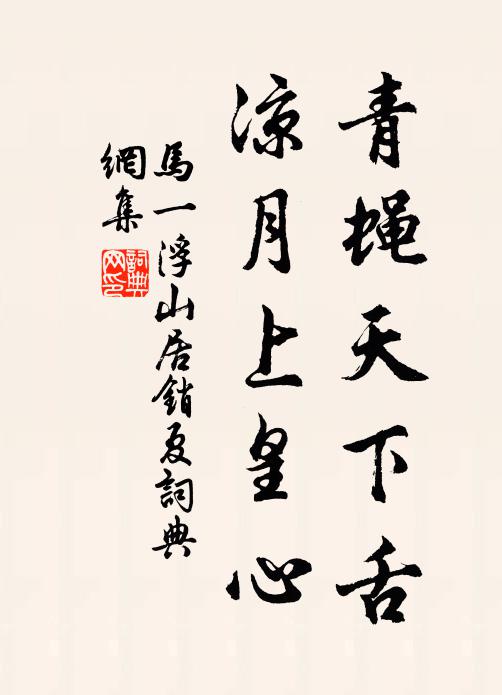 青蝇天下舌
凉月上皇心
馬一浮山居銷夏詞典
網集
詞典
网印